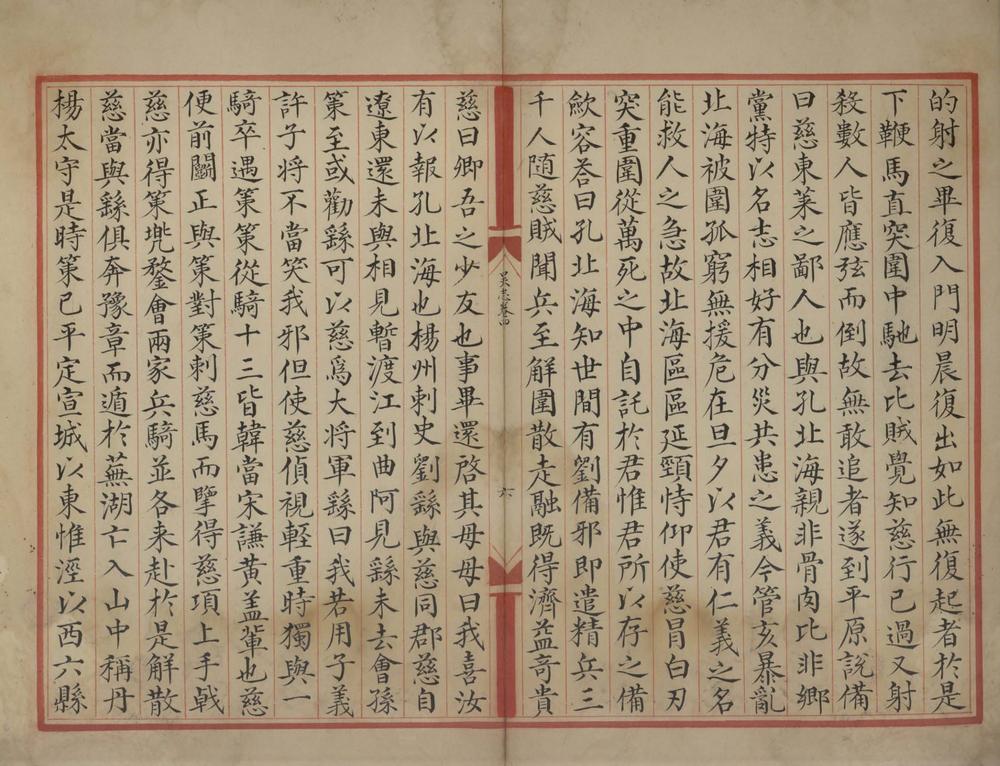 的射之畢復入門明晨復出如此無復起者於是
下鞭馬直突圍中馳去比賊覺知慈行已過又射
殺數人皆應弦而倒故無敢追者遂到平原說備
曰慈東萊之鄙人也與孔北海親非骨肉比非鄉
黨特以名志相好有分災共患之義今管亥暴亂
北海被圍孤窮無援危在旦夕以君有仁義之名
能救人之急故北海區區延頸恃仰使慈冒白刃
突重圍從萬死之中自託於君惟君所以存之備
歛容荅曰孔北海知世間有劉備邪即遣精兵三
千人随慈賊聞兵至解圍散走融既得濟益奇貴
吴志卷四
六
慈曰卿吾之少友也事畢還啓其母母曰我喜汝
有以報孔北海也楊州刺史劉繇與慈同郡慈自
遼東還未與相見暫渡江到曲阿見繇未去會孫
策至或勸繇可以慈爲大將軍繇曰我若用子義
許子將不當笑我邪但使慈偵視輕重時獨與一
騎卒遇策策從騎十三皆韓當宋謙黄盖輩也慈
便前鬭正與策對策刺慈馬而擥得慈項上手戟
慈亦得策兠鍪會兩家兵騎並各来赴於是解散
慈當與繇俱奔豫章而遁於蕪湖亡入山中稱丹
楊太守是時策已平定宣城以東惟涇以西六縣